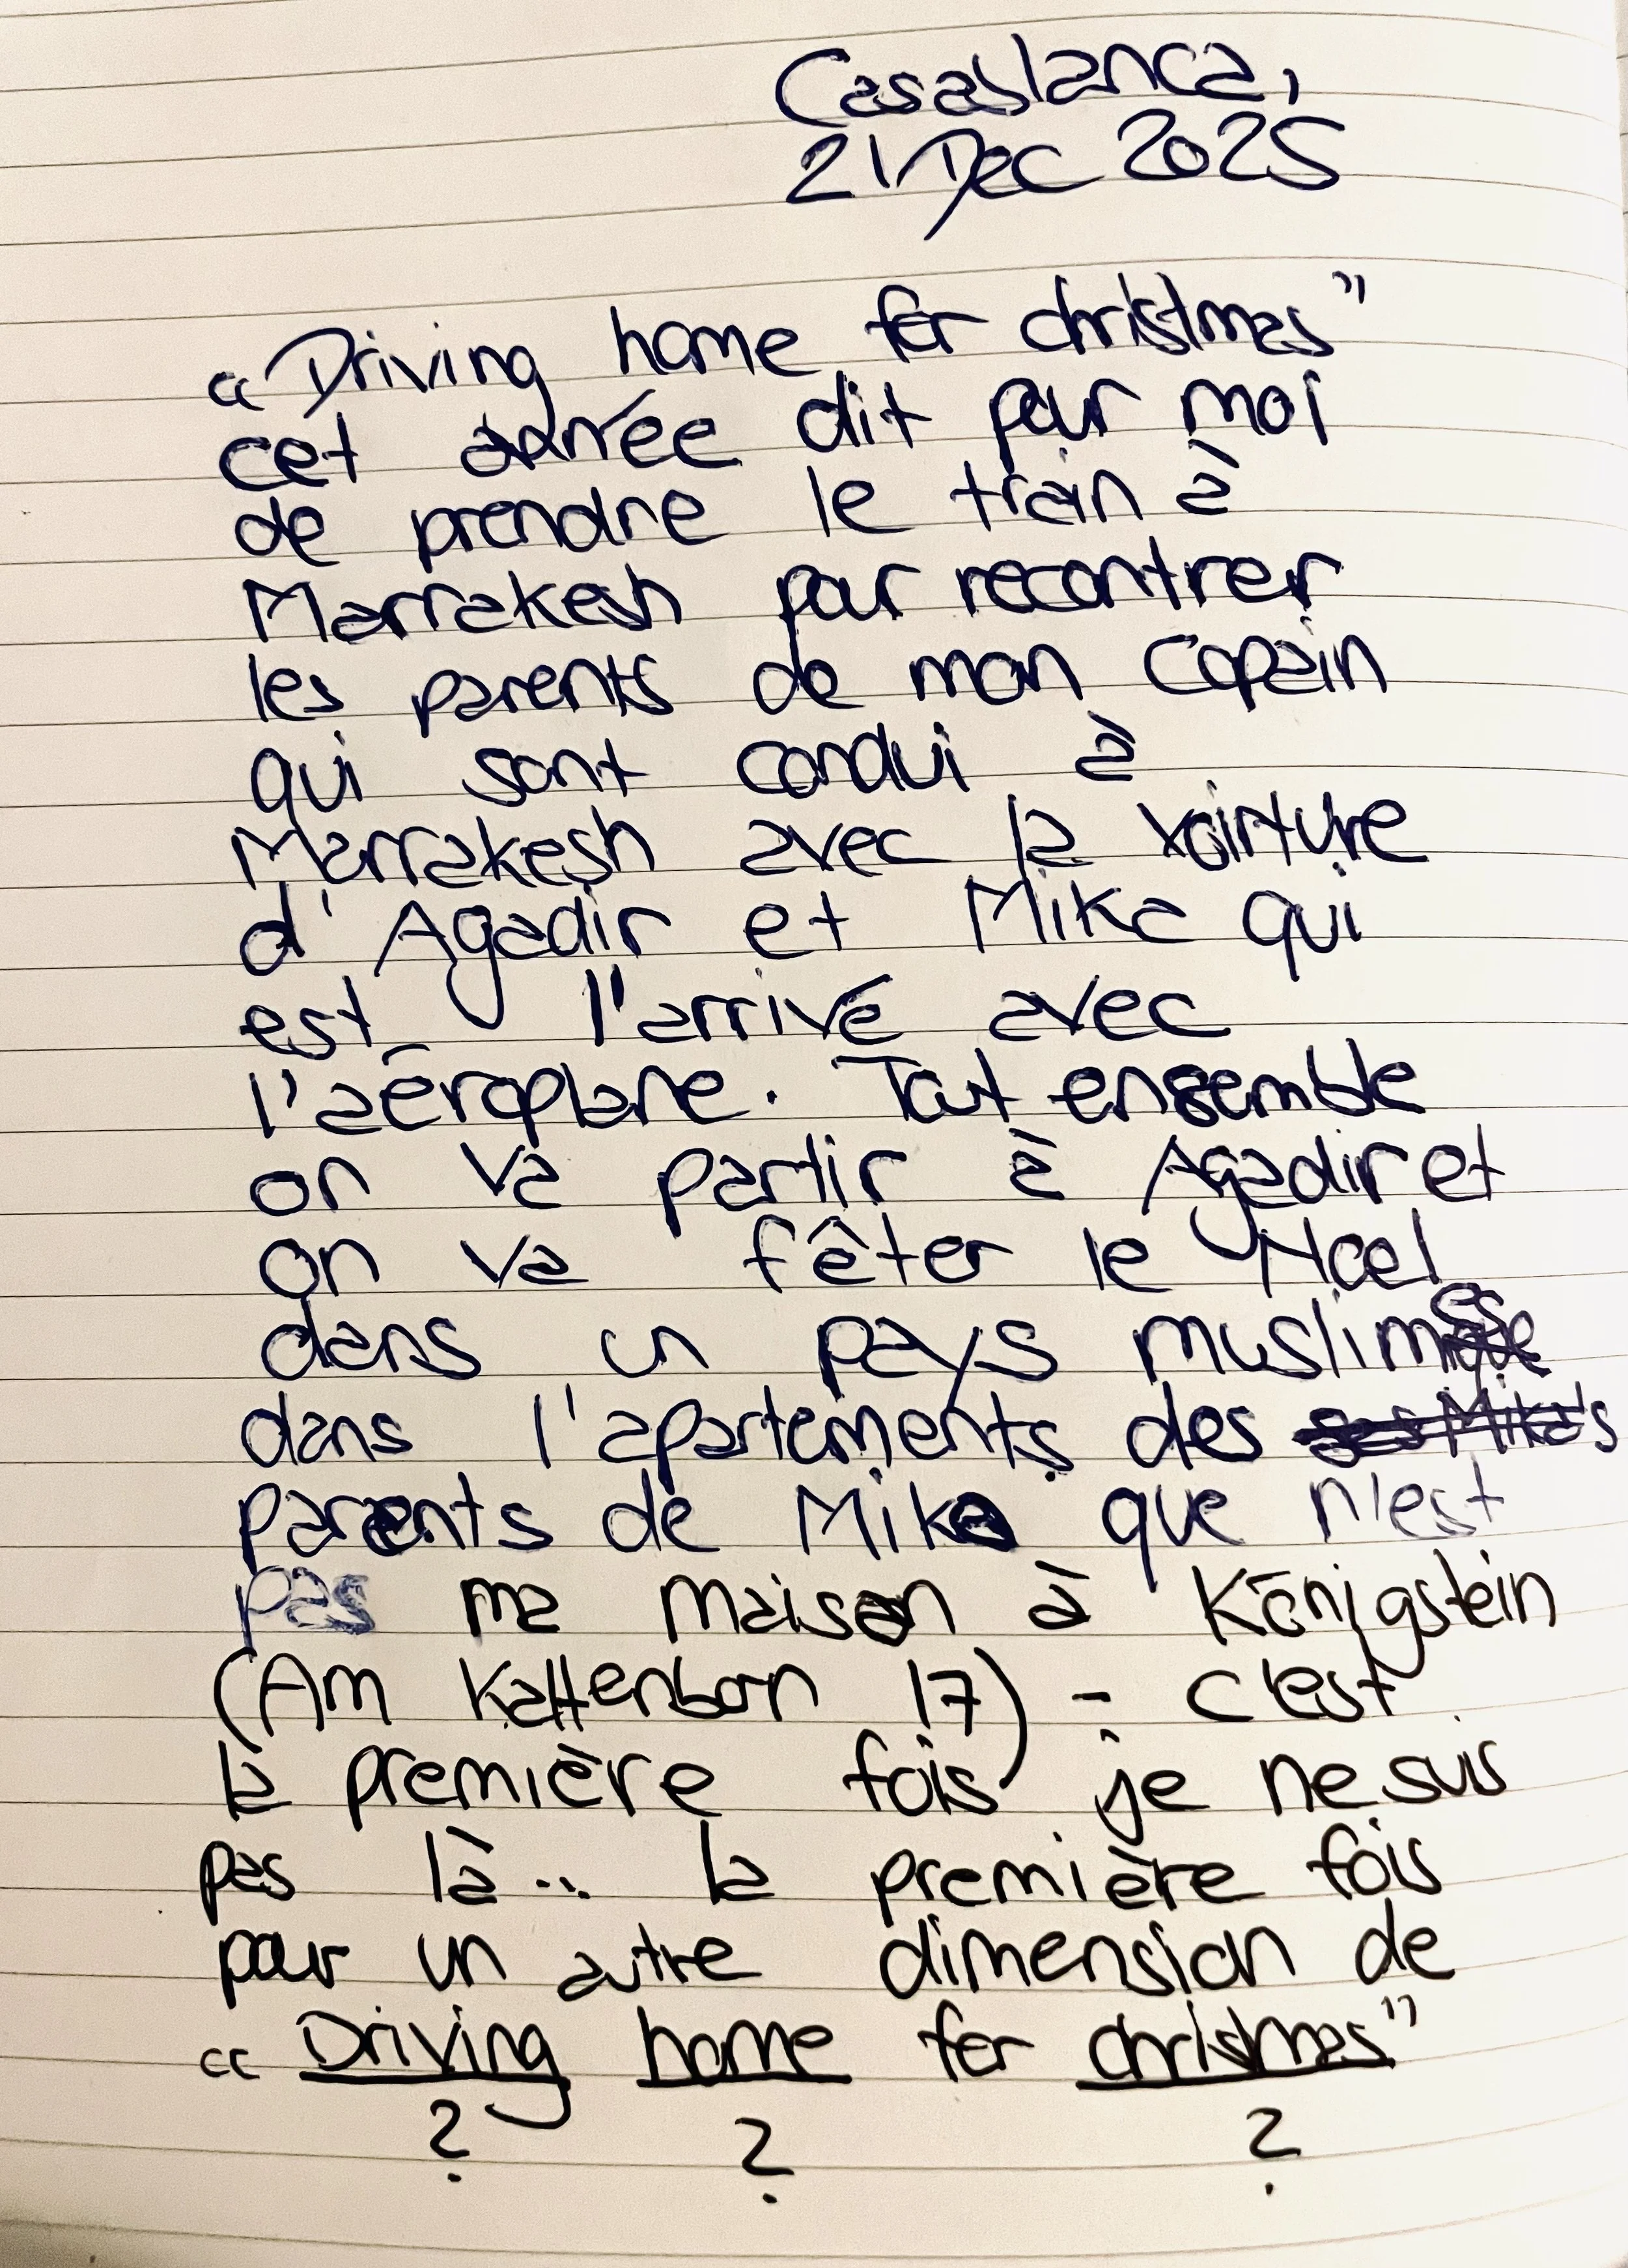 Casablanca,
21 Dec 2025
“Driving home for christmas”
cet année dit pour moi
de prendre le train à
Marrakesh pour recontrer
les parents de mon Copain
qui sont condui à
Marrakesh avec la voirture
d'Agadir et Mika qui
est l'arrivé avec
l'aéroplane. Tout ensemble
on va partir à Agadir et
on va fêter le Noel
dans un pays muslimes
dans l'apartements des
parents de Mika que n'est
pas ma maison à Königstein
(Am Kaltenborn 17) - c'est
la première fois je ne suis
pas là... la première fois
pour un autre dimension de
“Driving home for christmas”
? ? ?